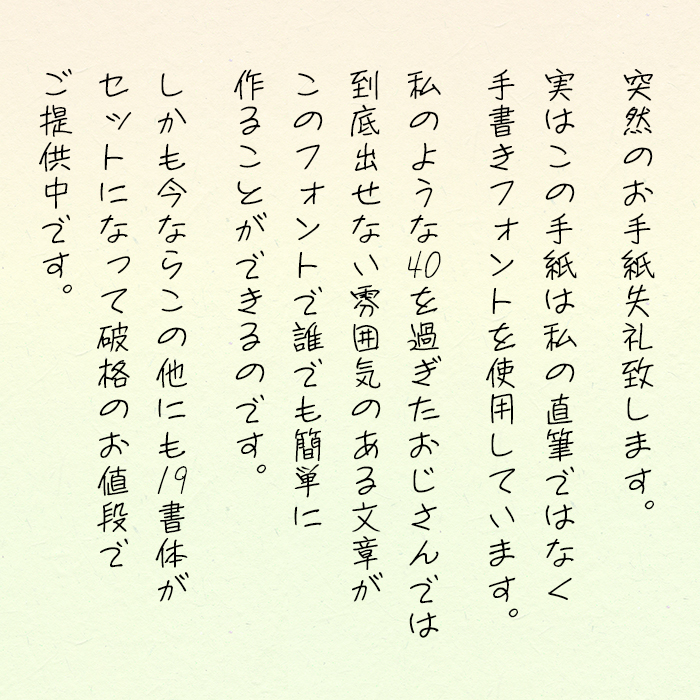 突然のお手紙失礼致します。
実はこの手紙は私の直筆ではなく
手書きフォントを使用しています。
私のような40を過ぎたおじさんでは
到底出せない雰囲気のある文章が
このフォントで誰でも簡単に
作ることができるのです。
しかも今ならこの他にも19書体が
セットになって破格のお値段で
ご提供中です。